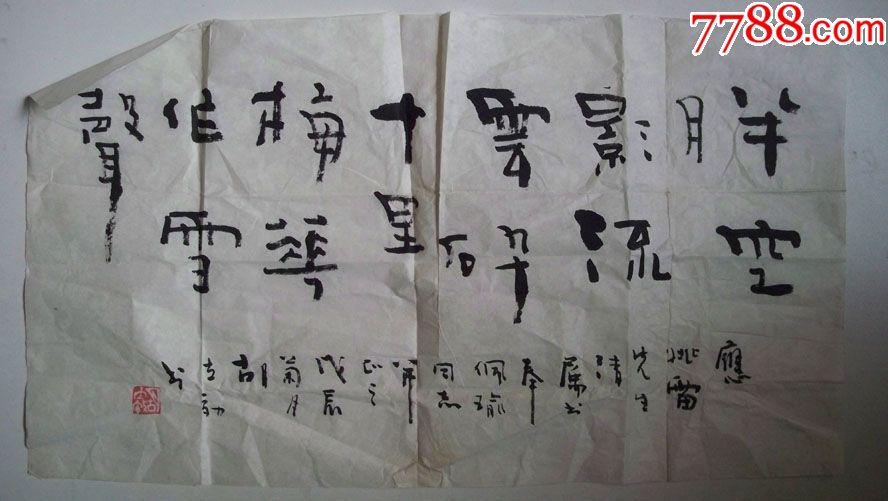 7788.com
半空
月
影流
雲碎
十里
梅華
作雪
聲
應
先生
清
屬書
奉
佩瑜
同志
正之
戊辰
菊月
胡
书